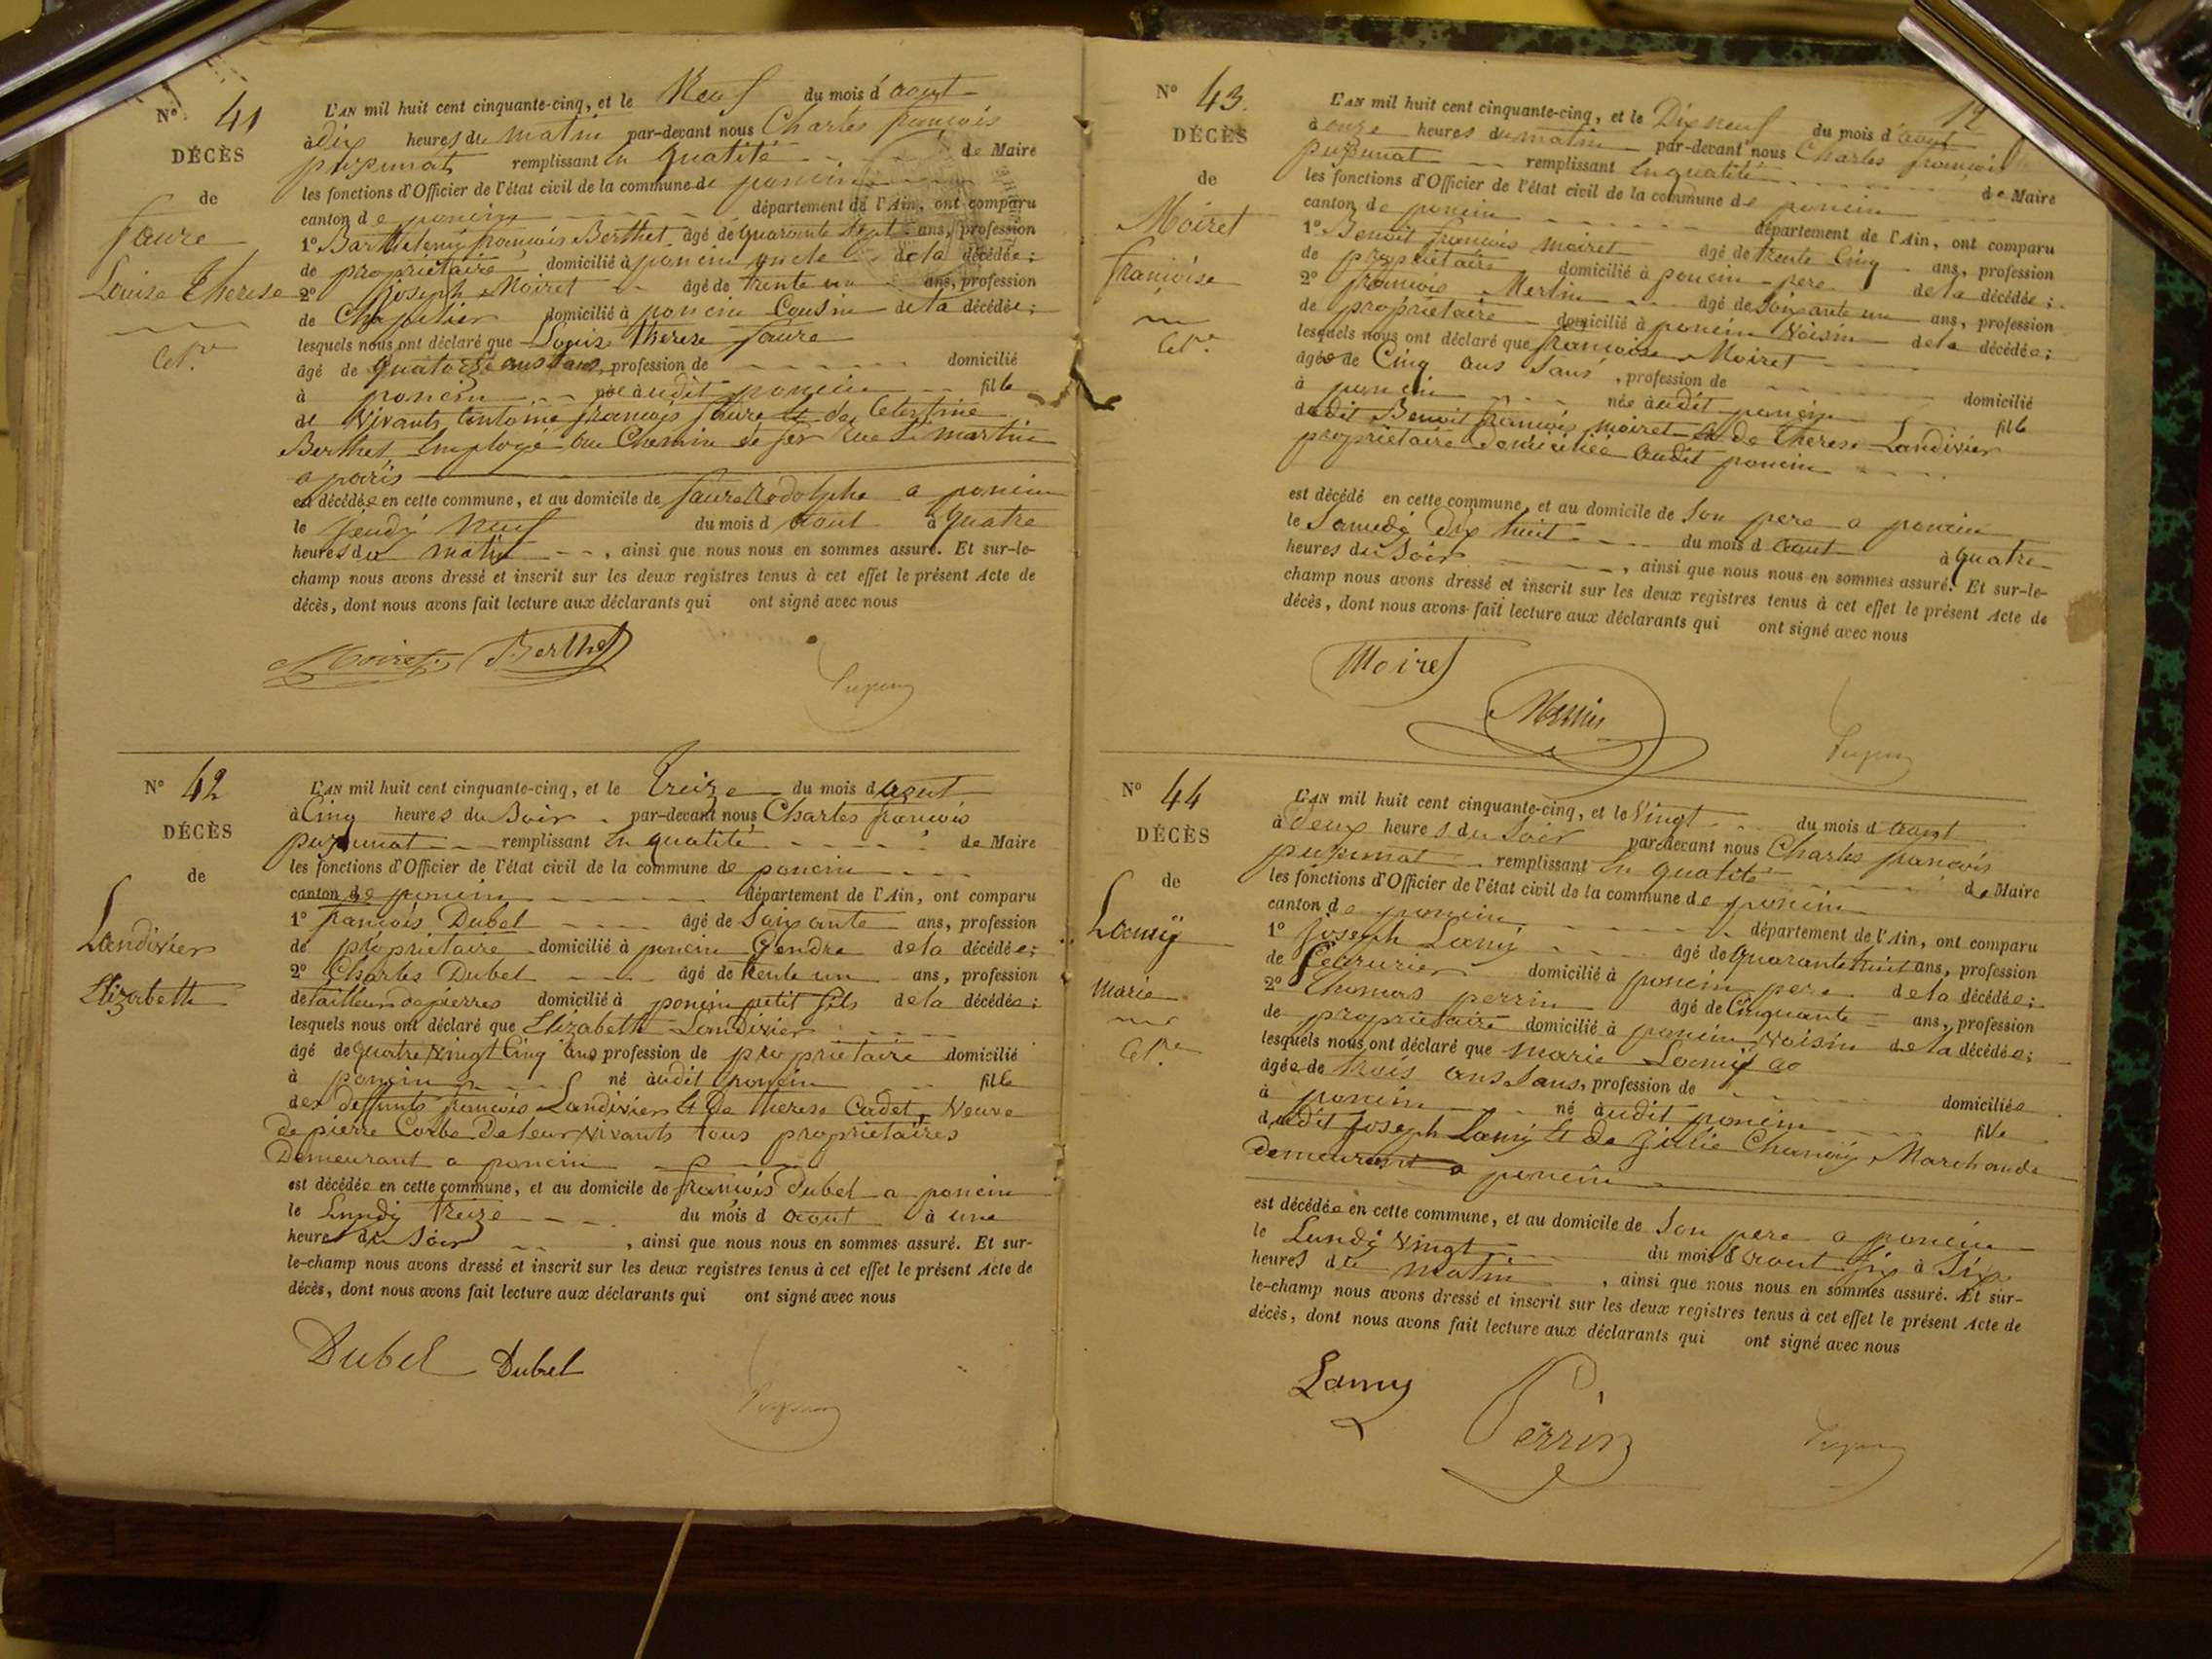 N° 41
DÉCÈS
de
faure
Louise Therese
L'AN mil huit cent cinquante-cinq, et le Neuf du mois d'aout
à dix heures du matin par-devant nous Charles françois
pupunat remplissant En qualité de Maire
les fonctions d'Officier de l'état civil de la commune de poncin
canton de poncin département de l'Ain, ont comparu
1° Barthelemy françois Berthet âgé de quarante Sept ans, profession
de propriétaire domicilié à poncin oncle de la décédée;
2° Joseph Moiret âgé de trente un ans, profession
de Chapelier domicilié à poncin Cousin de la décédée;
lesquels nous ont déclaré que Louise therese faure
âgé de quatorze ans Sans, profession de domicilié
à poncin née audit poncin fille
de vivants antoine françois faure et de Celestine
Berthet Employé au Chemin de fer rue St martin
a paris
est décédée en cette commune, et au domicile de faure Rodolphe a poncin
le jeudy neuf du mois d aout à quatre
heures du matin, ainsi que nous nous en sommes assuré. Et sur-le-
champ nous avons dressé et inscrit sur les deux registres tenus à cet effet le présent Acte de
décès, dont nous avons fait lecture aux déclarants qui ont signé avec nous
Moiret Berthet
N° 42
DÉCÈS
de
Landivier
Elizabeth
L'AN mil huit cent cinquante-cinq, et le treize du mois d'aout
à Cinq heures du Soir par-devant nous Charles françois
pupunat remplissant En qualité de Maire
les fonctions d'Officier de l'état civil de la commune de poncin
canton de poncin département de l'Ain, ont comparu
1° françois Dubel âgé de Soixante ans, profession
de propriétaire domicilié à poncin Gendre de la décédée;
2° Charles Dubel âgé de trente un ans, profession
de tailleur de pierres domicilié à poncin petit fils de la décédée;
lesquels nous ont déclaré que Elizabeth Landivier
âgé de quatre vingt Cinq ans profession de propriétaire domicilié
à poncin né audit poncin fille
des deffunts françois Landivier et De therese Cadet, veuve
De pierre Corbe De leur vivants tous propriétaires
Demeurant a poncin
est décédée en cette commune, et au domicile de françois Dubel a poncin
le Lundy treize du mois d aout à une
heure du Soir, ainsi que nous nous en sommes assuré. Et sur-
le-champ nous avons dressé et inscrit sur les deux registres tenus à cet effet le présent Acte de
décès, dont nous avons fait lecture aux déclarants qui ont signé avec nous
Dubel Dubel
12
N° 43.
DÉCÈS
de
Moiret
françoise
L'AN mil huit cent cinquante-cinq, et le Dix neuf du mois d'aout
à onze heures du matin par-devant nous Charles françois
pupunat remplissant En qualité de Maire
les fonctions d'Officier de l'état civil de la commune de poncin
canton de poncin département de l'Ain, ont comparu
1° Benoit françois Moiret âgé de trente Cinq ans, profession
de propriétaire domicilié à poncin pere de la décédée;
2° françois Merlin âgé de Soixante un ans, profession
de propriétaire domicilié à poncin Voisin de la décédée;
lesquels nous ont déclaré que françoise Moiret
âgée de Cinq ans Sans, profession de
à poncin née audit poncin domicilié
dudit Benoit françois Moiret et de Therese Landivier fille
propriétaire domiciliée audit poncin
est décédé en cette commune, et au domicile de Son pere a poncin
le Samedy dix huit du mois d aout à quatre
heures du Soir, ainsi que nous nous en sommes assuré. Et sur-le-
champ nous avons dressé et inscrit sur les deux registres tenus à cet effet le présent Acte de
décès, dont nous avons fait lecture aux déclarants qui ont signé avec nous
Moiret
N° 44
DÉCÈS
de
Lamÿ
Marie
L'AN mil huit cent cinquante-cinq, et le Vingt du mois d aout
à deux heures du Soir par-devant nous Charles françois
pupunat remplissant En qualité de Maire
les fonctions d'Officier de l'état civil de la commune de poncin
canton de poncin département de l'Ain, ont comparu
1° Joseph Lamy âgé de quarante huit ans, profession
de Serrurier domicilié à poncin pere de la décédée;
2° Thomas perrin âgé de Cinquante ans, profession
de propriétaire domicilié à poncin Voisin de la décédée;
lesquels nous ont déclaré que Marie Lamy
âgée de trois ans Sans, profession de
à poncin né audit poncin domiciliée
dudit Joseph Lamy et de Julie Chanay Marchande fille
demeurant a poncin
est décédée en cette commune, et au domicile de Son pere a poncin
le Lundy vingt du mois d'aout à Six
heures du matin, ainsi que nous nous en sommes assuré. Et sur-
le-champ nous avons dressé et inscrit sur les deux registres tenus à cet effet le présent Acte de
décès, dont nous avons fait lecture aux déclarants qui ont signé avec nous
Lamy Perrin